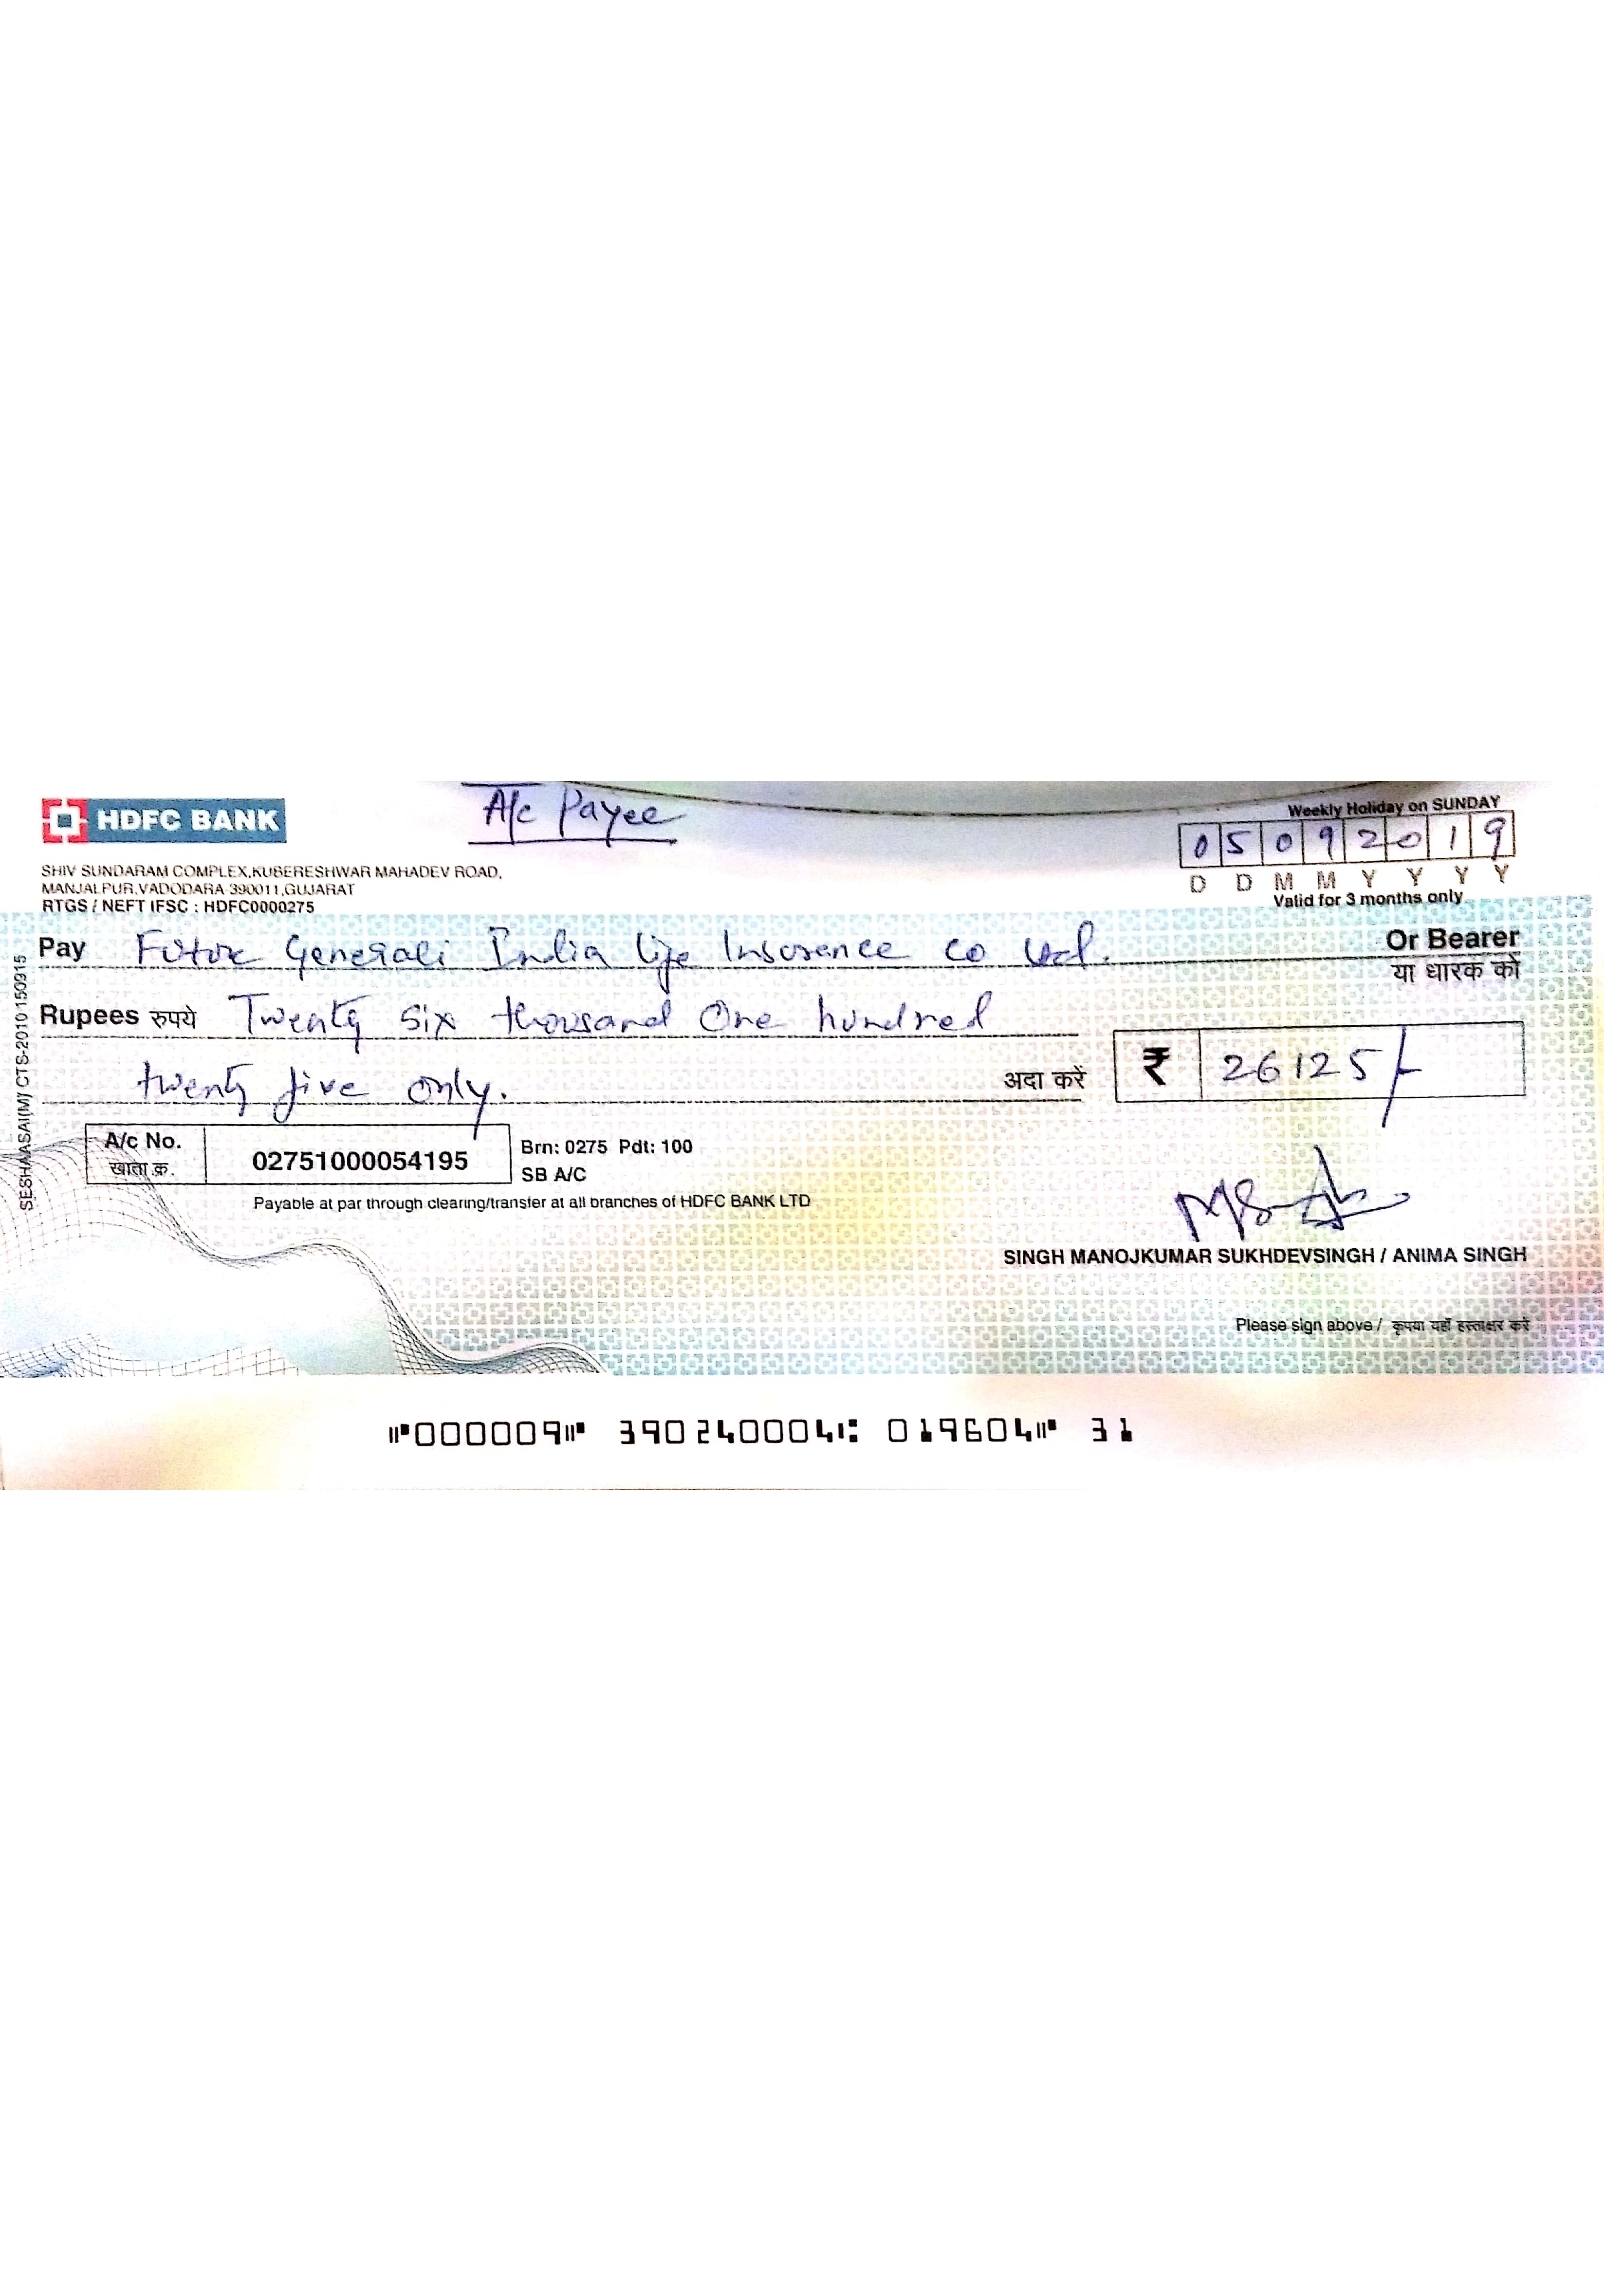 HDFC BANK
A/c Payee
Weekly Holiday on SUNDAY
05092019
D D M M Y Y Y Y
Valid for 3 months only
SHIV SUNDARAM COMPLEX,KUBERESHWAR MAHADEV ROAD,
MANJALPUR,VADODARA-390011,GUJARAT
RTGS / NEFT IFSC : HDFC0000275
Pay Future Generali India life Insurence co Ltd. Or Bearer
या धारक को
Rupees रुपये Twenty six thousand One hundred
twenty five only. अदा करें ₹ 26125/-
A/c No. 02751000054195 Brn: 0275 Pdt: 100
खाता क्र. SB A/C
Payable at par through clearing/transfer at all branches of HDFC BANK LTD
SINGH MANOJKUMAR SUKHDEVSINGH / ANIMA SINGH
Please sign above / कृपया यहाँ हस्ताक्षर करें
SESHAASAI(M)/ CTS-2010 150915
⑈000009⑈ 390240004⑆ 019604⑈ 31